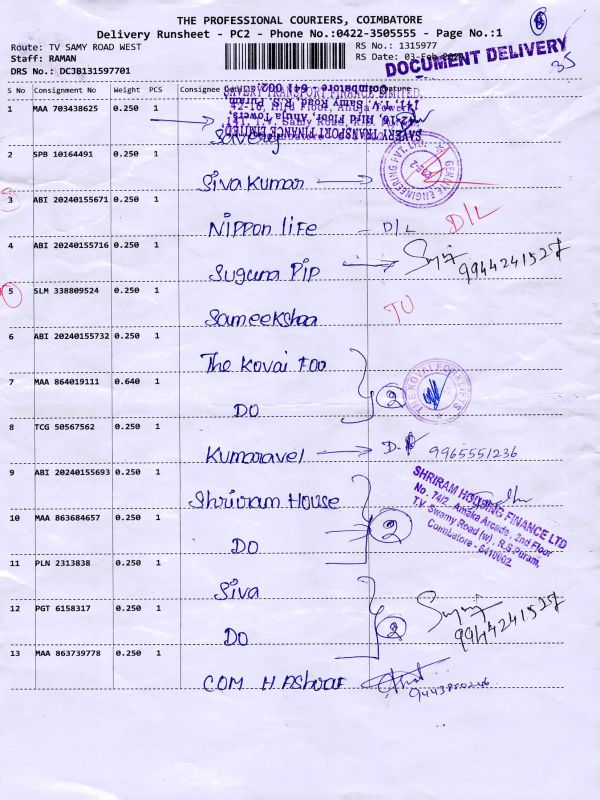 THE PROFESSIONAL COURIERS, COIMBATORE
Delivery Runsheet - PC2 - Phone No.:0422-3505555 - Page No.:1
Route: TV SAMY ROAD WEST
RS No.: 1315977
Staff: RAMAN
RS Date: 03-Feb
DRS No.: DCJB131597701
DOCUMENT DELIVERY
35
S No Consignment No Weight PCS Consignee
1 MAA 703438625 0.250 1
SAVERY TRANSPORT FINANCE LIMITED.
2 SPB 10164491 0.250 1
Siva Kumar
GEMLITE ENGINEERING PVT. LTD.
3 ABI 20240155671 0.250 1
Nippon life - D/L D/L
4 ABI 20240155716 0.250 1
Suguna PIP 9944241527
5 SLM 338809524 0.250 1
Sameekshaa
6 ABI 20240155732 0.250 1
The Kovai Foo
7 MAA 864019111 0.640 1
DO 2
8 TCG 50567562 0.250 1
Kumaravel 9965551236
9 ABI 20240155693 0.250 1
Shriram House
SHRIRAM HOUSING FINANCE LTD
No. 74/2, Amaka Arcade, 2nd Floor
T.V. Swamy Road (w), R.S.Puram,
Coimbatore - 6410002.
10 MAA 863684657 0.250 1
DO 2
11 PLN 2313838 0.250 1
Siva
12 PGT 6158317 0.250 1
DO 2 9944241527
13 MAA 863739778 0.250 1
COM H Ashraf